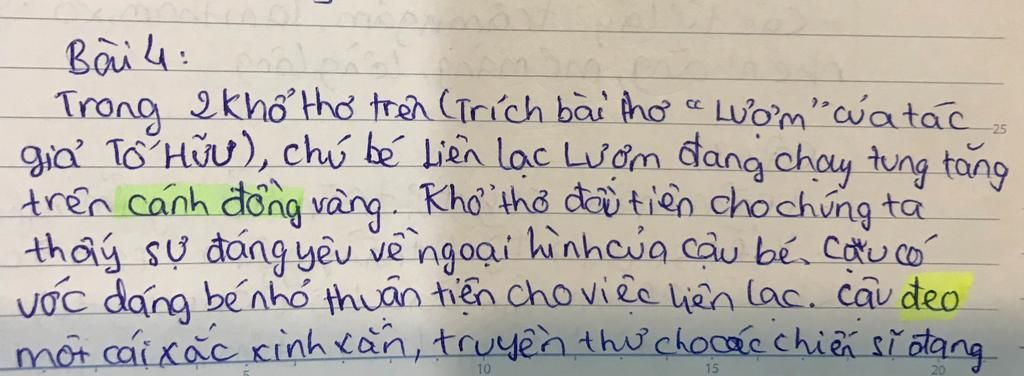 Bài 4:
Trong 2 khổ thơ trên (Trích bài thơ "Lượm" của tác
giả Tố Hữu), chú bé liên lạc Lượm đang chạy tung tăng
trên cánh đồng vàng. Khổ thơ đầu tiên cho chúng ta
thấy sự đáng yêu về ngoại hình của cậu bé. Cậu có
vóc dáng bé nhỏ thuận tiện cho việc liên lạc. Cậu đeo
một cái xắc xinh xắn, truyền thư cho các chiến sĩ đang
5 10 15 20 25